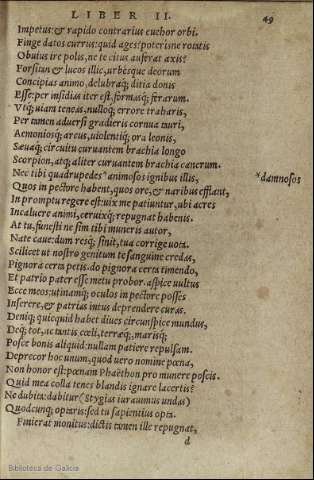 LIBER II.
49
Impetus: & rapido contrarius euehor orbi.
Finge datos currus: quid ages? poterisne rotatis
Obuius ire polis, ne te citus auferat axis?
Forsitan & lucos illic, urbesque deorum
Concipias animo, delubraq; ditia donis
Esse: per insidias iter est, formasq; ferarum.
Vtq; uiam teneas, nulloq; errore traharis,
Per tamen aduersi gradieris cornua tauri,
Aemoniosq; arcus, uiolentiq; ora leonis,
Sæuaq; circuitu curuantem brachia longo
Scorpion, atq; aliter curuantem brachia cancrum.
Nec tibi quadrupedes ˣanimosos ignibus illis, ˣdamnosos
Quos in pectore habent, quos ore, & naribus efflant,
In promptu regere est: uix me patiuntur, ubi acres
Incaluere animi, ceruixq; repugnat habenis.
At tu, funesti ne sim tibi muneris autor,
Nate caue: dum resq; sinit, tua corrige uota.
Scilicet ut nostro genitum te sanguine credas,
Pignora certa petis. do pignora certa timendo,
Et patrio pater esse metu probor. aspice uultus
Ecce meos: utinamq; oculos in pectore posses
Inserere, & patrias intus deprendere curas.
Deniq; quicquid habet diues circunspice mundus,
Deq; tot, ac tantis cœli, terræq;, marisq;
Posce bonis aliquid: nullam patiere repulsam.
Deprecor hoc unum, quod uero nomine pœna,
Non honor est: pœnam Phaëthon pro munere poscis.
Quid mea colla tenes blandis ignare lacertis?
Ne dubita: dabitur (Stygias iurauimus undas)
Quodcunq; optaris: sed tu sapientius opta.
Finierat monitus: dictis tamen ille repugnat,
d
Biblioteca de Galicia